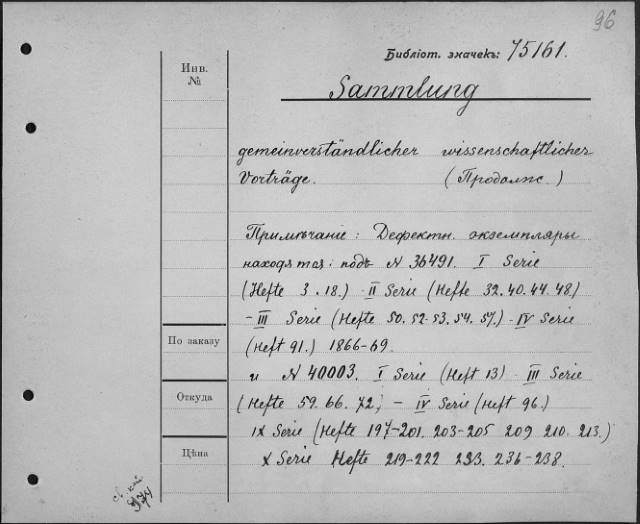 96
Библіот. значекъ: 75161.
Инв.
№
Sammlung
gemeinverständlicher wissenschaftlicher
Vorträge. (Продолж.)
Примѣчаніе: Дефектн. экземпляры
находятся: подъ N 36491. I Serie
(Hefte 3. 18.) - II Serie (Hefte 32. 40. 44. 48)
- III Serie (Hefte 50. 52-53. 54. 57.) - IV Serie
По заказу
(Heft 91.) 1866-69.
и N 40003. I Serie (Heft 13) - III Serie
Откуда
(Hefte 59. 66. 72; - IV Serie (Heft 96.)
IX Serie (Hefte 197-201. 203-205 209 210. 213.)
Цѣна
X Serie Hefte 219-222 233. 236-238.
974